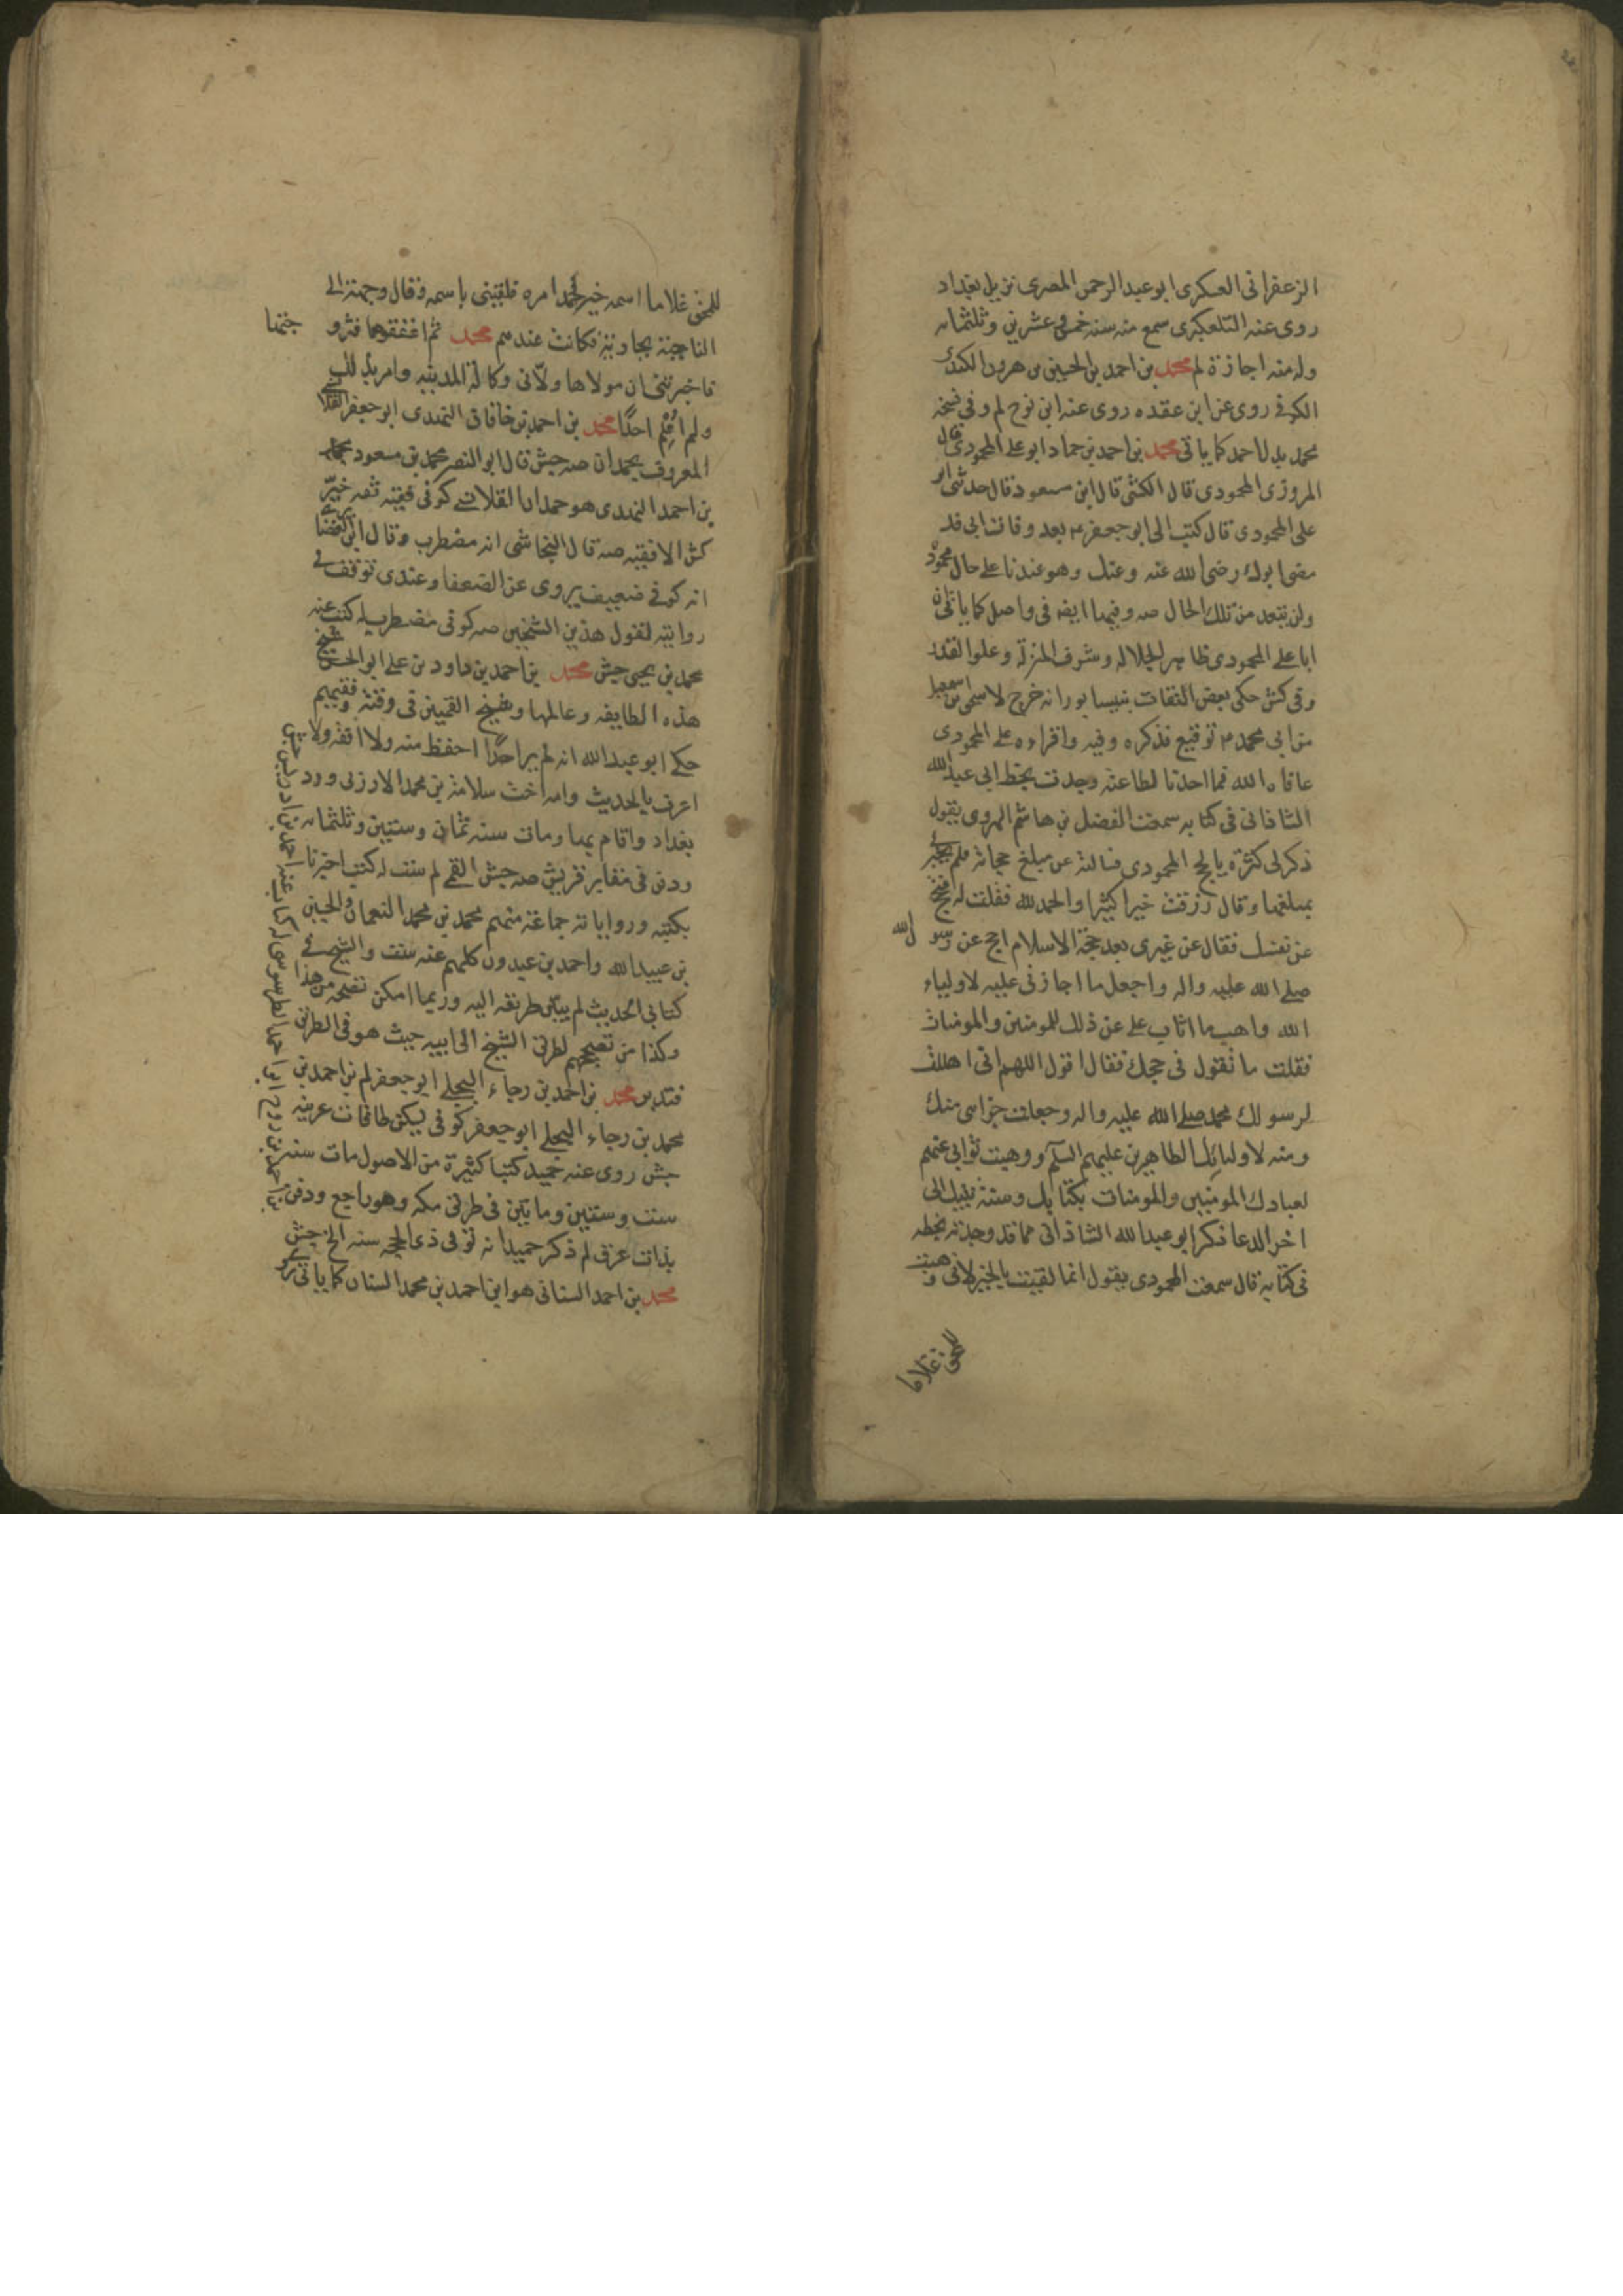 الزعفرانى العسكرى ابو عبد الرحمن المصرى نزيل بغداد
روى عنه التلعكبرى سمع منه سنه خمس وعشرين وثلثمائه
وله منه اجازة لم محمد بن احمد بن الحسين بن هرون الكندى
الكوفى روى عن ابن عقده روى عنه ابن نوح لم وفى نسخه
محمد بدل احمد كما ياتى محمد بن احمد بن حماد ابو على المحمودى قال
المروزى المحمودى قال الكشى قال ابن مسعود قال حدثنى ابو
على المحمودى قال كتب الى ابو جعفر بعد وفات ابى قد
مضى ابوك رضى الله عنه وعنك وهو عندنا على حال محمودة
ولن يتعد من تلك الحال صه وفيها ايضه فى واصل كما ياتى ان
ابا على المحمودى ظاهر الجلاله وشرف المنزلة وعلو القدر
وفى كش حكى بعض الثقات بنيسابور انه خرج لاسحق بن اسمعيل
من ابى محمد توقيع فذكره وفيه واقراه على المحمودى
عافاه الله فما احمدنا لطاعته وجدت بخط ابى عبد الله
الشاذانى فى كتابه سمعت الفضل بن هاشم الهروى يقول
ذكر لى كثرة ما يحج المحمودى فسالته عن مبلغ حجاته فلم يخبر
بمبلغها وقال رزقت خيرا كثيرا والحمد لله فقلت له فتحج
عن نفسك فقال عن غيرى بعد حجة الاسلام احج عن رسول الله
صلى الله عليه واله واجعل ما اجازنى عليه لاولياء
الله واهب ما اثاب على عن ذلك للمومنين والمومنات
فقلت ما تقول فى حجك فقال اقول اللهم انى اهللت
لرسولك محمد صلى الله عليه واله وجعلت جزاى منك
ومنه لاوليائك الطاهرين عليهم السلم ووهبت ثوابى عنهم
لعبادك المومنين والمومنات بكتابك وسنة نبيك الى
اخر الدعا ذكر ابو عبد الله الشاذانى مما قد وجدته بخطه
فى كتابه قال سمعت المحمودى يقول انما لقبت بالخير لانى وهبت
للحق غلاما
للحق غلاما اسمه خير لحمد امره فلقبنى باسمه وقال وجهت الى
الناحية بجاوية فكانت عندهم محمد ثم اعتقوها فتزوجتها
فاخبرتنى ان مولاها ولانى وكالة المدينه وامر بذلك
ولم اعلم احدا محمد بن احمد بن خاقان النهدى ابو جعفر القلانسى
المعروف بحمدان صه جش قال ابو النضر محمد بن مسعود محمد
بن احمد النهدى هو حمدان القلانسى كوفى فقيه ثقه خير
كش الا فقيه صه قال النجاشى انه مضطرب وقال ابن الغضائرى
انه كوفى ضعيف يروى عن الضعفا وعندى توقف فى
روايته لقول هذين الشيخين صه كوفى مضطرب له كتب عنه
محمد بن يحيى جش محمد بن احمد بن داود بن على ابو الحسن شيخ
هذه الطايفه وعالمها وشيخ القميين فى وقته وفقيههم
حكى ابو عبد الله انه لم ير احدا احفظ منه ولا افقه ولا
اعرف بالحديث وامه اخت سلامة بن محمد الارزنى ورد
بغداد واقام بها ومات سنه ثمان وستين وثلثمائه
ودفن فى مقابر قريش صه جش القمى لم ست له كتب اخبرنا
بكتبه ورواياته جماعة منهم محمد بن محمد النعمان والحسين
بن عبيد الله واحمد بن عبدون كلهم عنه ست والشيخ فى
كتابى الحديث لم يبين طريقه اليه وربما امكن تصحيحه من هذا
وكذا من تصحيحهم لطرق الشيخ الى ابيه حيث هو فى الطريق
فتدبر محمد بن احمد بن رجاء البجلى ابو جعفر لم بن احمد بن
محمد بن رجاء البجلى ابو جعفر كوفى يسكن طاقات عرينه
جش روى عنه حميد كتبا كثيرة من الاصول مات سنه
ست وستين ومايتين فى طريق مكه وهو راجع ودفن
بذات عرق لم ذكر حميد انه توفى ذى الحجه سنه الخ جش
محمد بن احمد السنانى هو ابن احمد بن محمد السنان كما ياتى